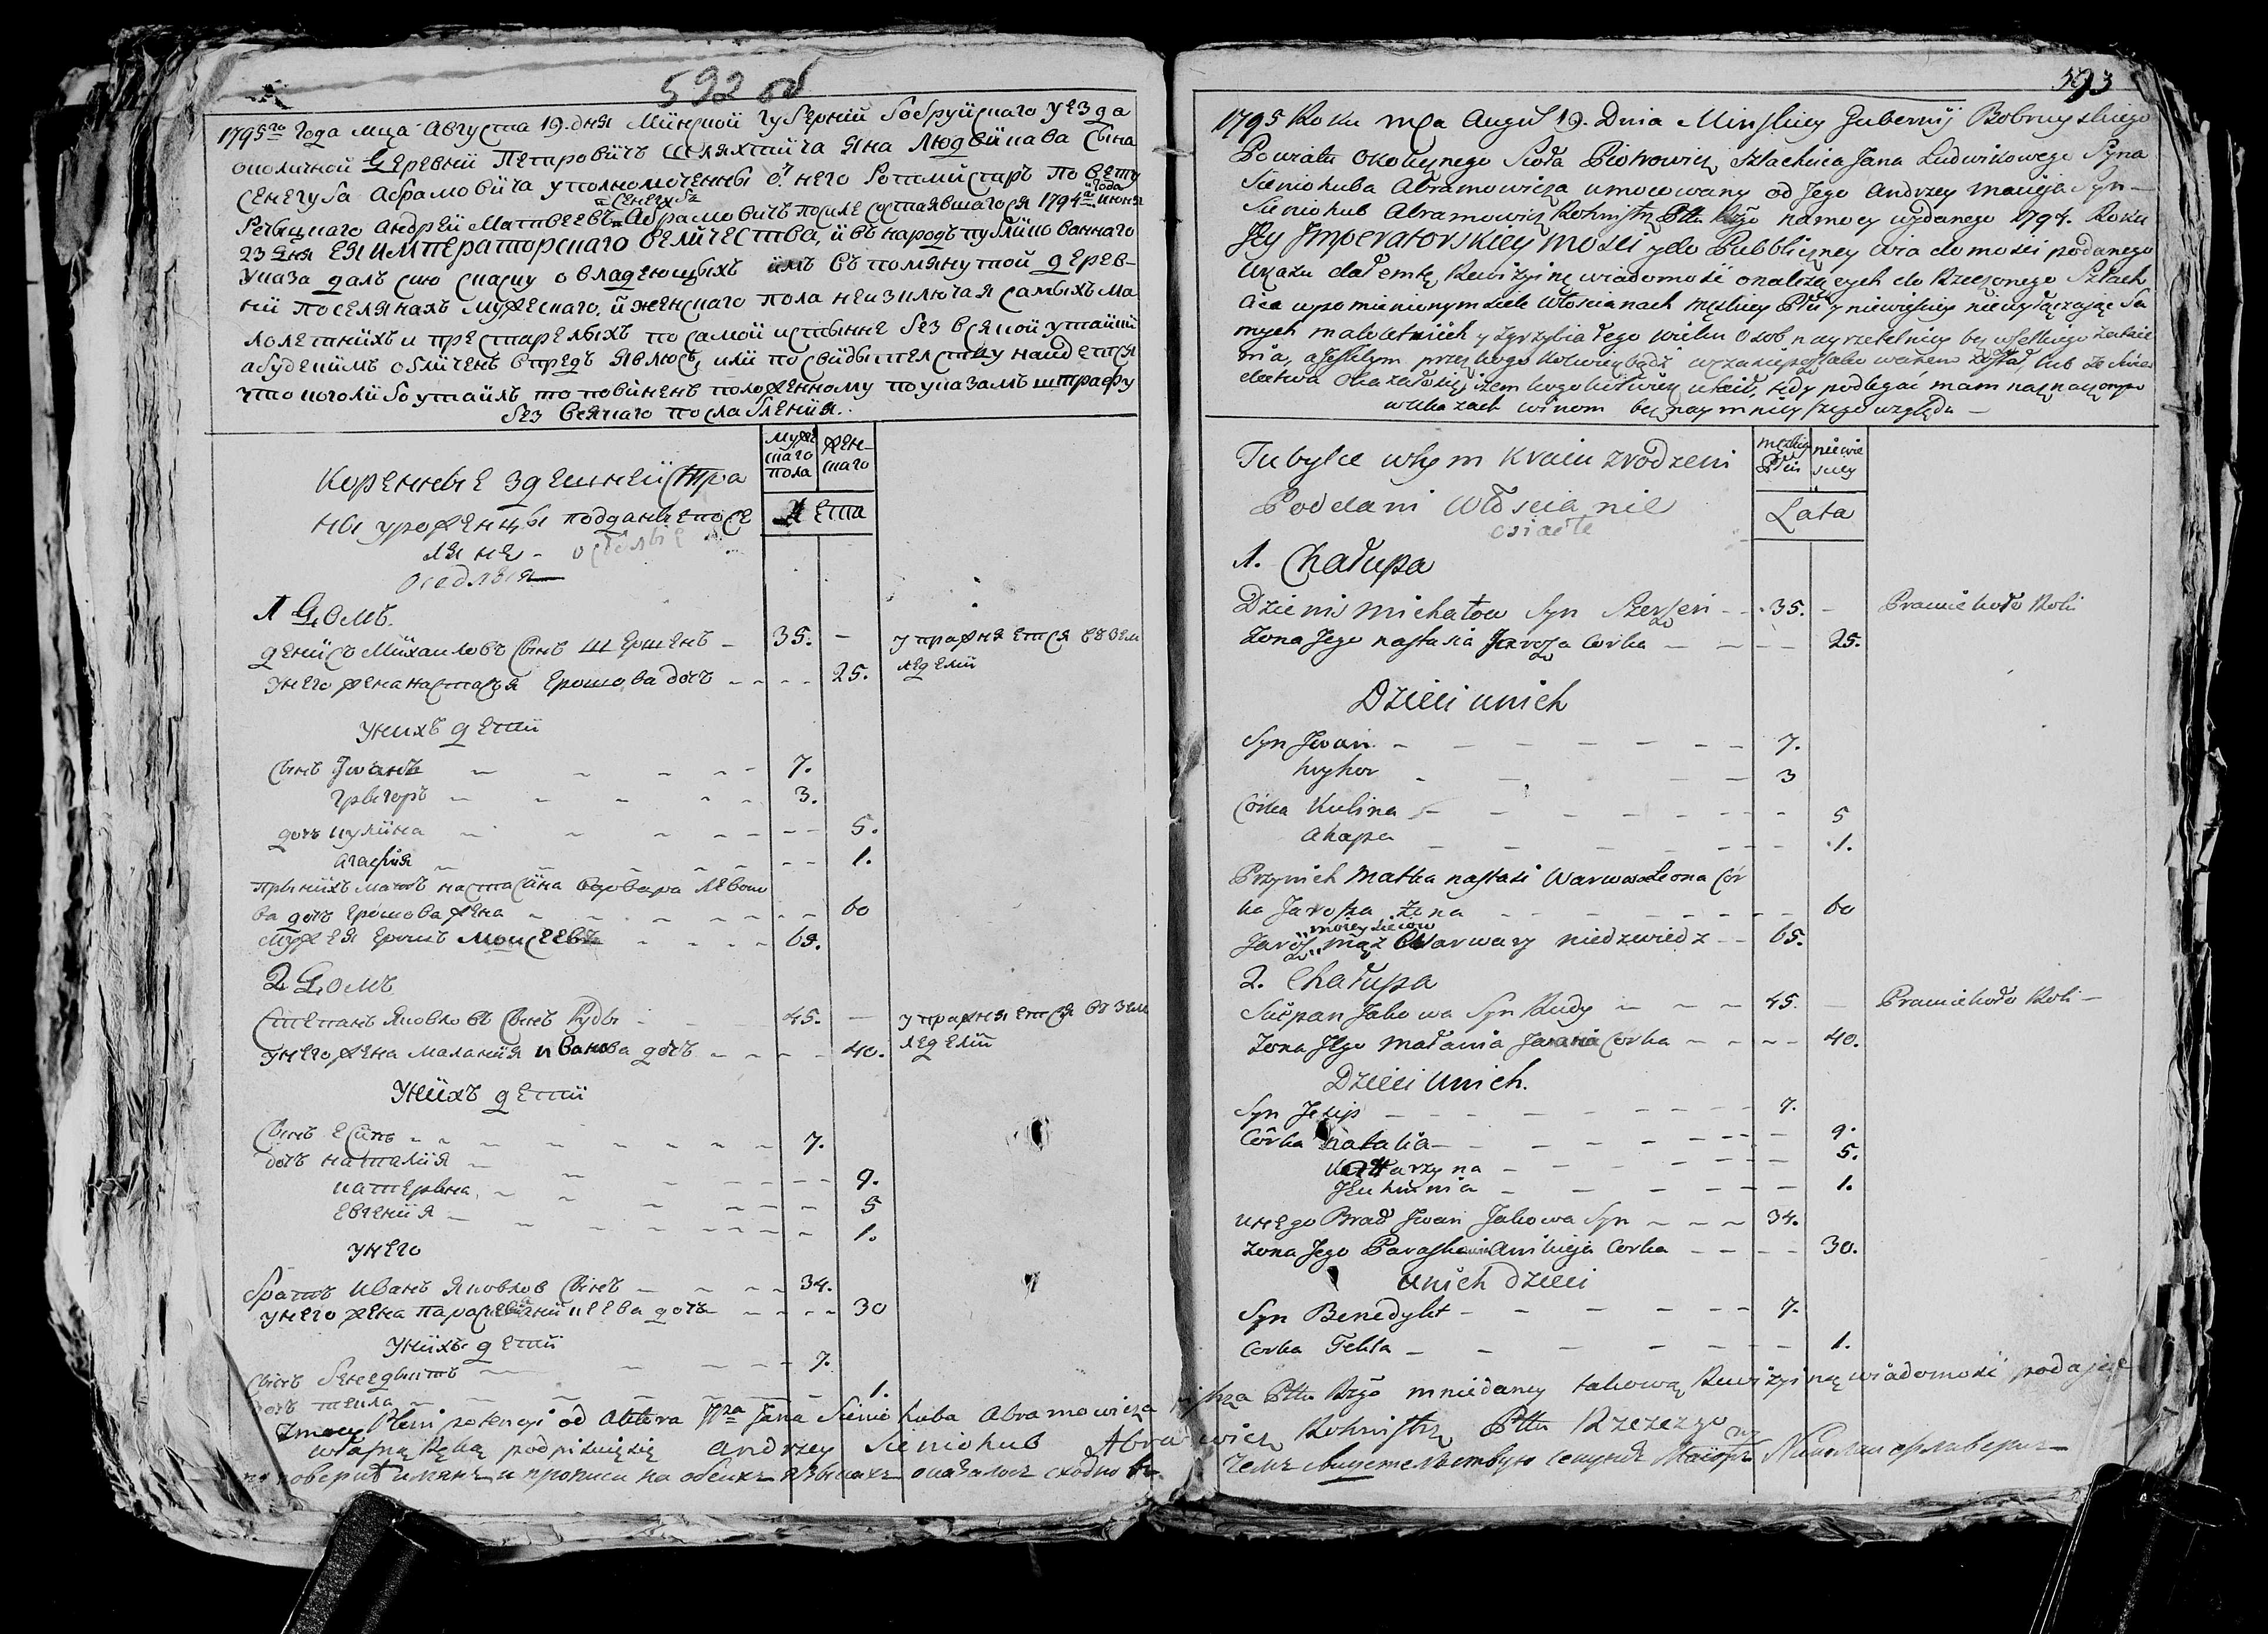 592 об
1795го Года мца Августа 19. дня Минской губерний Бобруйскаго уезда
околичной Деревнй Петровичъ шляхтича Яна Людвикава Сына
Сенегуба Абрамовича уполномоченны от него Ротмистръ повету
Сенегубъ года
Речицкаго Андрей Матвеевъ Абрамовичъ по силе состаявшагося 1794 июня
23 дня ЕЯ ИМПЕРАТОРСКАГО ВЕЛИЧЕСТВА, и въ народъ публикованнаго
Указа далъ сию скаску о владеющыхъ имъ въ помянутой дерев-
ни поселянахъ мужескаго, и женскаго пола неизключая самыхъ ма
лолетнихъ и престарелыхъ по самой истынне без всякой утайки
абуде кимъ обличенъ впредъ явлюсъ, или по свидытелству найдется
что коголибо утаилъ то повиненъ положенному по указамъ штрафу
без всякаго послабления.
Коренные здешней стра
ны уроженцы подданые посе
ляне - оселые
оседлыя
мужескаго пола
женскаго
Лета
1 Домъ.
Денисъ Михаиловъ сынъ Шершенъ - 35. - упражняется въ зем
леделии
унего жена настасъя Ерошова дочъ - - - - 25.
Унихъ дети
Сынъ Иванъ - - - - - 7.
Грыгоръ - - - - - 3.
дочъ кулина - - - - - - 5.
Агафия - - - - - - 1.
прыныхъ матъ настасина варвара Левоно
ва дочъ Ерошова жена - - - - - - - 60
мужея Ерошъ Моисеевъ - - - - 65.
2 Домъ
Степанъ Яковлевъ сынъ Руды - - 45. - упражняется въ зем
леделии
унего жена Малания Иванова дочъ - - - - 40.
Унихъ дети
Сынъ Есипъ - - - - - - - 7.
дочъ наталия - - - - - - 9.
катерына - - - - - - 5
Евгения - - - - - - 1.
унего
братъ Иванъ Яковлевъ сынъ - - - - 34.
унего жена параскевия аникеева дочъ - - - - 30
Унихъ дети
Сынъ Бенедыктъ - - - - 7.
дочъ текла - - - - - - 1.
593
1795 Roku mca Augus 19. Dnia Minskiey Gubernij Bobruyskiego
Powiatu okolicznego Sioła Piotrowicz Szlachcica Jana Ludwikowego Syna
Sieniohuba Abramowicza umocowany od Jego Andrzey Macieja Syn -
Sieniohub Abramowicz Rohmistrz Pttu Rzgo na mocy wydanego 1794. Roku
Jey Imperatorskiey Mosci y do Publiczney wiadomosci podanego
Ukazu dałem tę Rewizyiną wiadomosć o należących do Rzeczonego Szlach
cica w pomienionym Siele Włoscianach męskiey Płci y niewieskiey niewyłączając Sa
mych małoletnich y zgrzybiałego wieku Osob nayrzetelniey bez wszelkiego zataie
nia, a jeżelym przez kogo kolwiek bądź
dectwa okazało się, iżem kogokolwiek utaił, tedy podlegać mam naznaczonym po
w ukazach winom bez naymnieyszego względu -
Tubylce w tym Kraiu zrodzeni
Poddani Włoscianie
osiadłe
męskiey Płci
niewiesciey
Lata
1. Chałupa
Dzienis Michałow Syn Szerszeń - - 35. - Pracuie koło Roli
Zona Jego nastasia Jarosza Corka - - - - 25.
Dzieci u nich
Syn Jwan - - - - - - - 7.
hryhor - - - - - 3
Córka Kulina - - - - - - - 5
Ahapa - - - - - - - .1.
Przy nich Matka nastasi Warwara Leona Cór
ka Jarosza Żona - - - - - - - 60
Jarosz mąż Warwary niedzwiedz - - 65.
2. Chałupa
Scićpan Jakowa Syn Rudy - - - - 45. - Pracuie koło Roli -
Zona Jego Małania Jwana Corka - - - - 40.
Dzieci u nich.
Syn Jesip - - - - - - - - 7.
Córka Natalia - - - - - - - - 9.
Katarzyna - - - - - - - 5.
Jeuhinia - - - - - - 1.
u niego Brad Jwan Jakowa Syn - - - 34.
Zona Jego Paraska Anikieja Corka - - - - 30.
u nich dzieci
Syn Benedykt - - - - - - 7.
Corka Tekla - - - - - - - 1.
Z mocy Plenipotencyi od Aktora JPna Jana Sieniohuba Abramowicza Pttu Rzgo mnie daney takową Rewizyiną wiadomosć podając
własną Ręką podpisuię się Andrzey Sieniohub Abramowicz Rohmistrz Pttu Rzeczzgo
по поверке имянъ и прописи на обеихъ языкахъ оказалось сходно въ чемъ свидетельствую секундъ Маиоръ Николаи